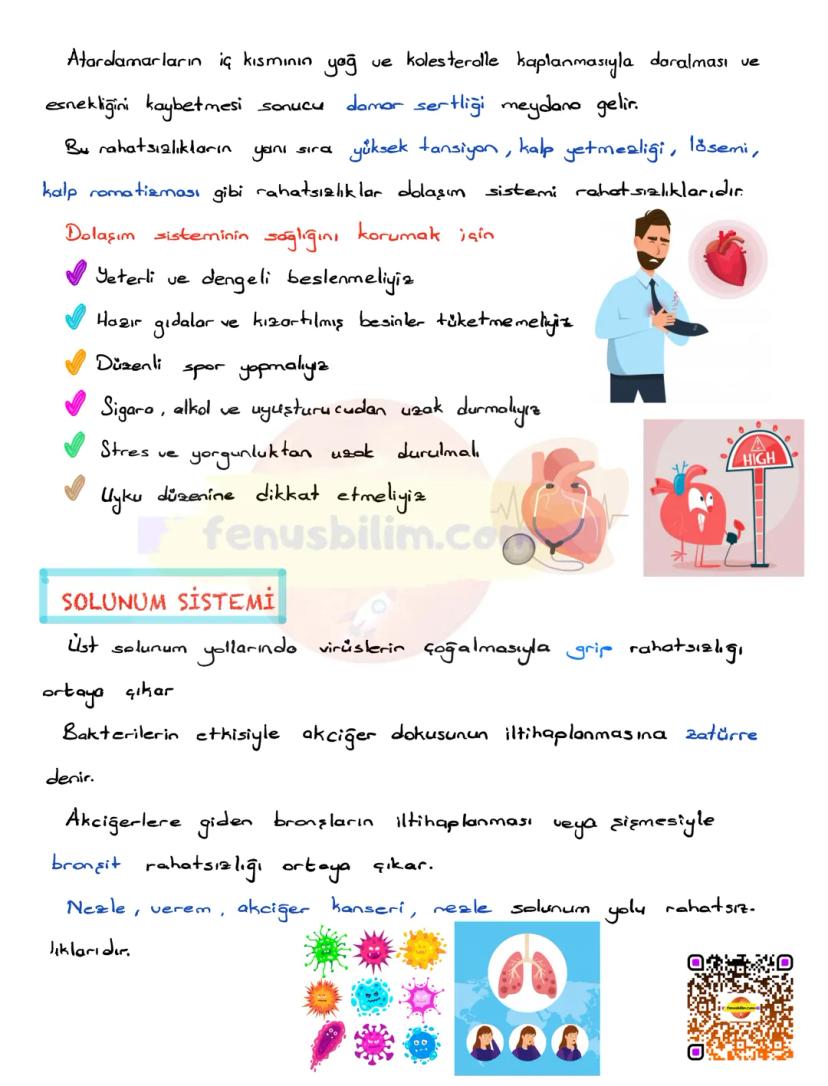 Atardamarların iç kısmının yağ ve kolesterolle kaplanmasıyla daralması ve
esnekliğini kaybetmesi sonucu damar sertliği meydana gelir.
Bu rahatsızlıkların yanı sıra yüksek tansiyon, kalp yetmezliği, lösemi,
kalp romatizması gibi rahatsızlıklar dolaşım sistemi rahatsızlıklarıdır.
Dolaşım sisteminin sağlığını korumak için
Yeterli ve dengeli beslenmeliyiz
Hazır gıdalar ve kızartılmış besinler tüketmemeliyiz
Düzenli spor yapmalıyız
Sigara, alkol ve uyuşturucudan uzak durmalıyız
Stres ve yorgunluktan uzak durulmalı
HIGH
Uyku düzenine dikkat etmeliyiz
fenusbilim.com
SOLUNUM SİSTEMİ
Üst solunum yollarında virüslerin çoğalmasıyla grip rahatsızlığı
ortaya çıkar
Bakterilerin etkisiyle akciğer dokusunun iltihaplanmasına zatürre
denir.
Akciğerlere giden bronşların iltihaplanması veya şişmesiyle
bronşit rahatsızlığı ortaya çıkar.
Nezle, verem, akciğer kanseri, nezle solunum yolu rahatsız-
lıklarıdır.
fenusbilim.com